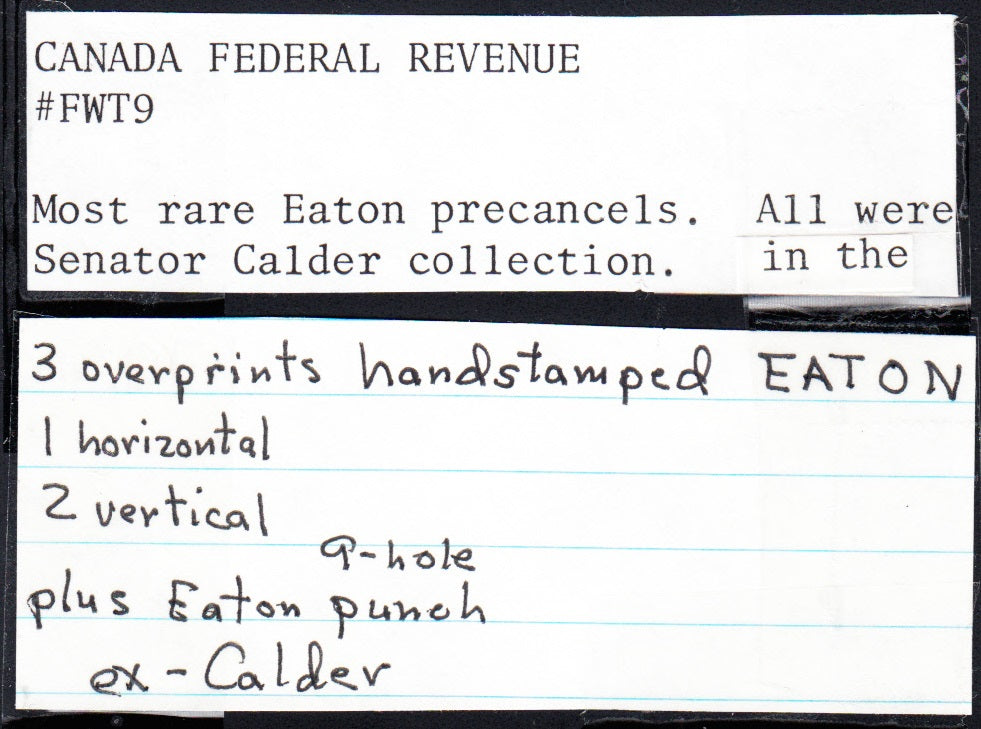 CANADA FEDERAL REVENUE
#FWT9
Most rare Eaton precancels. All were
Senator Calder collection. in the
3 overprints handstamped EATON
1 horizontal
2 vertical
9-hole
plus Eaton punch
ex-Calder